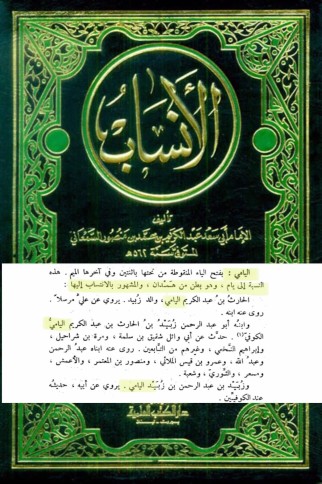 الأنساب
تأليف
الإمام أبي سعد عبد الكريم بن محمد بن منصور السمعاني
المتوفى سنة ٥٦٢ هـ
اليامي : بفتح الياء المنقوطة من تحتها باثنتين وفي آخرها الميم . هذه
النسبة إلى يام ، وهو بطن من همدان ، والمشهور بالانتساب إليها :
الحارث بن عبد الكريم اليامي، والد زُبيد . يروي عن علي مرسلاً .
روى عنه ابنه .
وابنه أبو عبد الرحمن زُبَيْدُ بنُ الحارث بن عبد الكريم الياميُّ
الكوفيّ(١) . حدّث عن أبي وائل شقيق بن سلمة ، ومرة بن شراحيل ،
وإبراهيم النَّخَعي ، وغيرهم من التابعين . روى عنه ابناه عبدُ الرحمن
وعبدُ الله ، وعمرو بن قيس الملائي ، ومنصور بن المعتمر ، والأعمش ،
ومسعر ، والثَّوريّ ، وشعبة .
وزُبَيْد بن عبد الرحمن بن زُبَيْد اليامي . يروي عن أبيه ، حديثُه
عند الكوفيّين .
دار الكتب العلمية